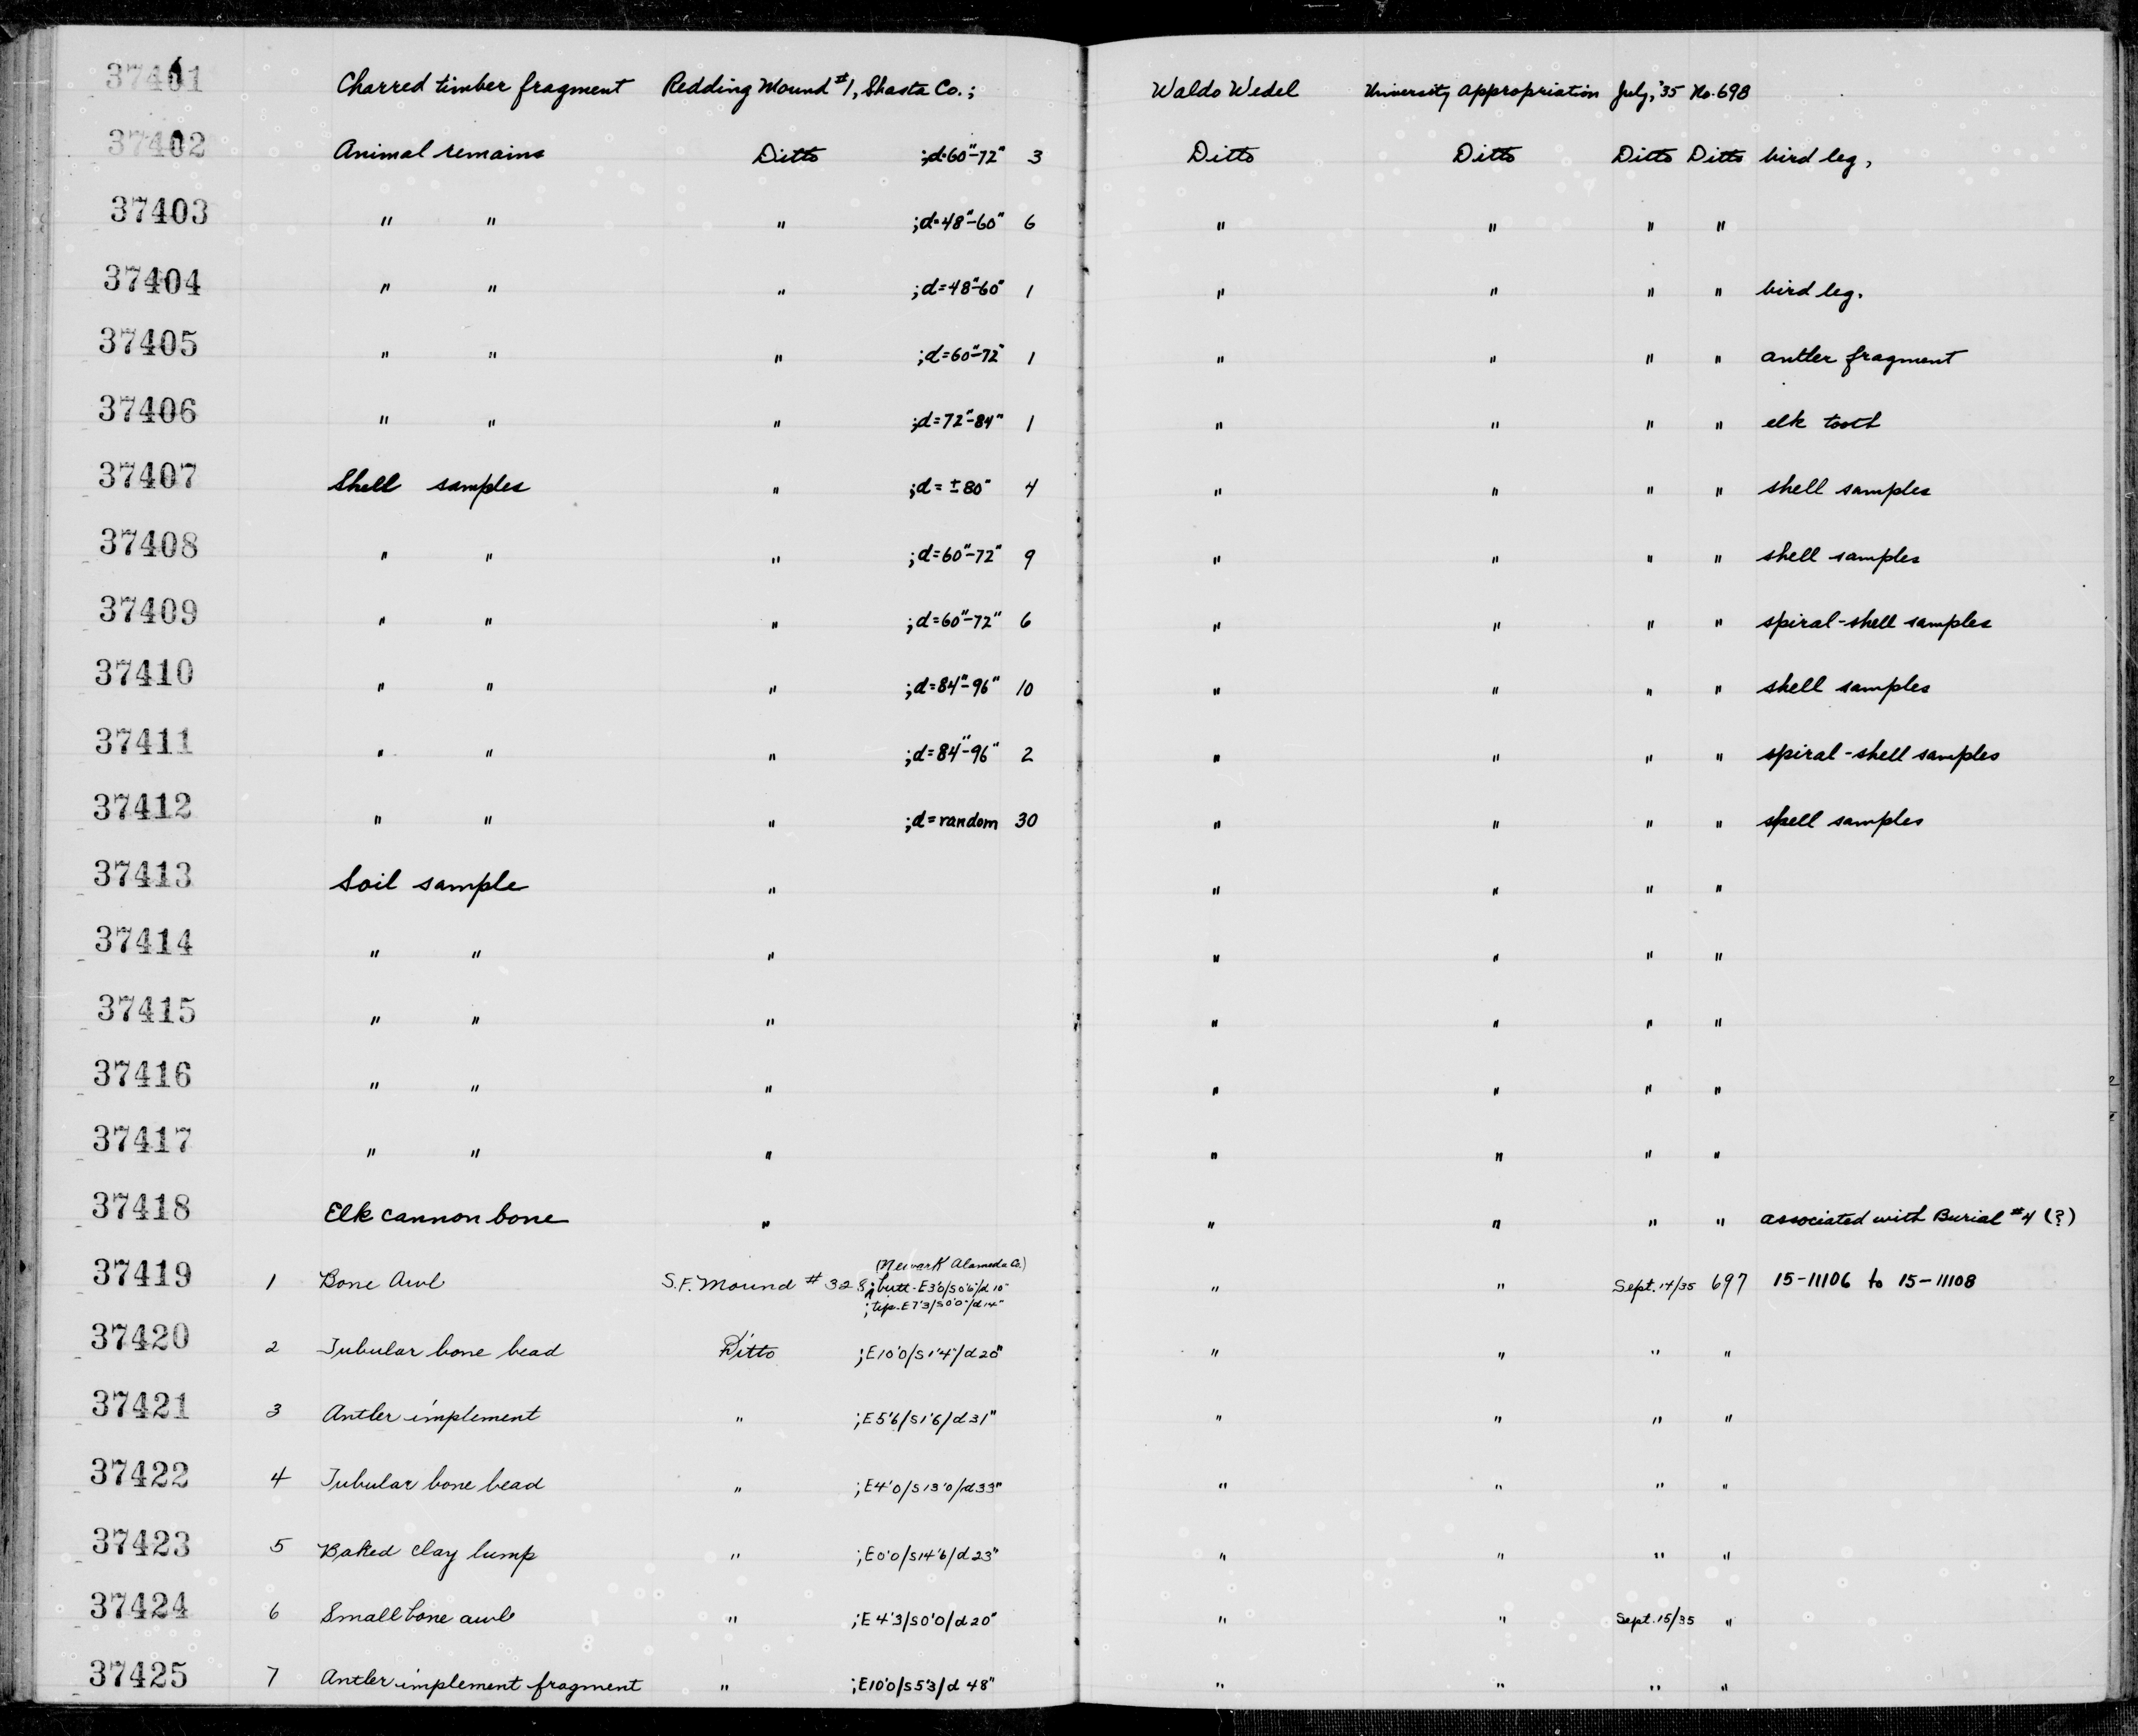 37401 Charred timber fragment Redding Mound #1, Shasta Co.; Waldo Wedel University Appropriation July, '35 No. 698
37402 Animal remains Ditto ;d=60"-72" 3 Ditto Ditto Ditto Ditto bird leg,
37403 " " " ;d=48"-60" 6 " " " "
37404 " " " ;d=48"-60" 1 " " " " bird leg.
37405 " " " ;d=60"-72" 1 " " " " antler fragment
37406 " " " ;d=72"-84" 1 " " " " elk tooth
37407 Shell samples " ;d= ±80" 4 " " " " shell samples
37408 " " " ;d=60"-72" 9 " " " " shell samples
37409 " " " ;d=60"-72" 6 " " " " spiral-shell samples
37410 " " " ;d=84"-96" 10 " " " " shell samples
37411 " " " ;d=84"-96" 2 " " " " spiral-shell samples
37412 " " " ;d=random 30 " " " " spell samples
37413 Soil sample " " " " "
37414 " " " " " " "
37415 " " " " " " "
37416 " " " " " " "
37417 " " " " " " "
37418 Elk cannon bone " " " " " associated with Burial #4 (?)
(Newark Alameda Co.)
37419 1 Bone Awl S.F. Mound #328; butt-E3'0/S0'6"/d10" " " Sept. 14/35 697 15-11106 to 15-11108
;tip-E7'3/S0'0"/d14"
37420 2 Tubular bone bead Ditto ;E10'0/S1'4"/d20" " " " "
37421 3 Antler implement " ;E5'6/S1'6/d31" " " " "
37422 4 Tubular bone bead " ;E4'0/S13'0/d33" " " " "
37423 5 Baked clay lump " ;E0'0/S14'6/d23" " " " "
37424 6 Small bone awl " ;E4'3/S0'0/d20" " " Sept. 15/35 "
37425 7 Antler implement fragment " ;E10'0/S5'3/d48" " " " "